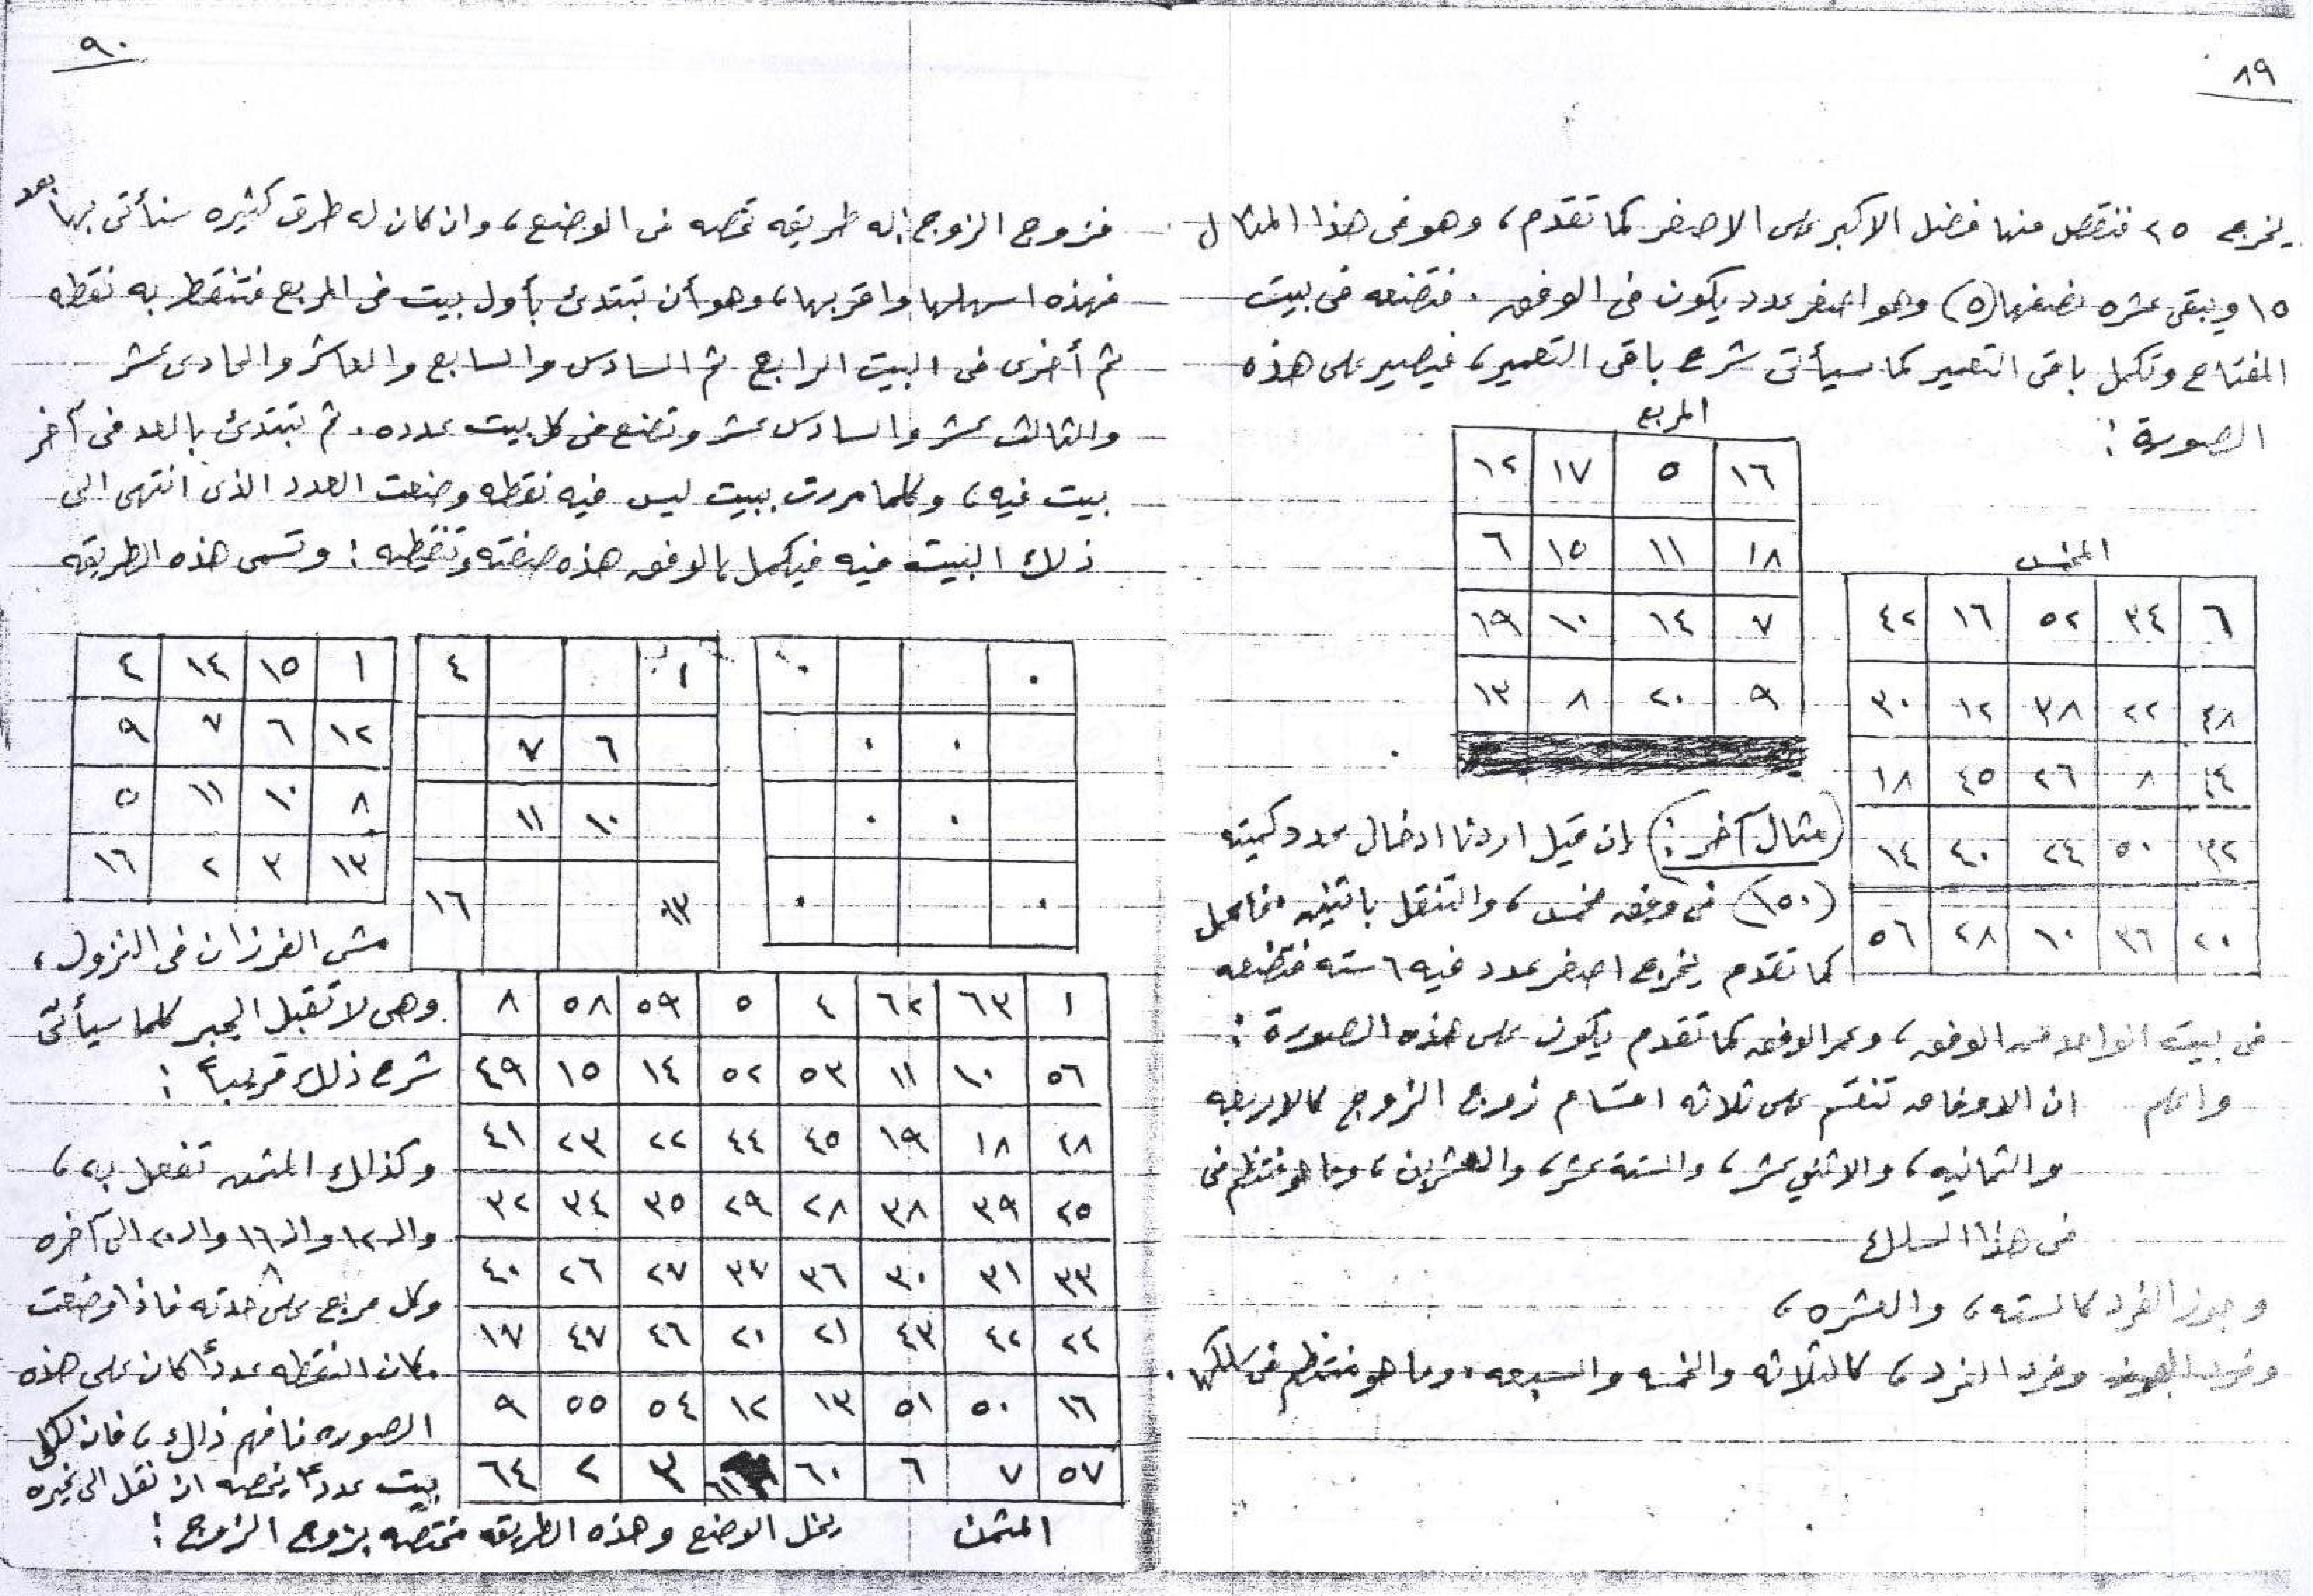 ٨٩
يخرج ٢٥ فنقص منها فضل الاكبر على الاصغر كما تقدم، وهو فى هذا المثال
١٥ ويبقى عشره نصفها (٥) وهو اصغر عدد يكون فى الوفق. فتضعه فى بيت
المفتاح وتكمل باقى التعمير كما سيأتى شرح باقى التعمير، فيصير على هذه
الصورة:
المربع
١٦ ٥ ١٧ ١٢
١٨ ١١ ١٥ ٦
٧ ١٤ ١٠ ١٩
٩ ٢٠ ٨ ١٣
المخمس
٦ ٣٤ ٥٢ ١٦ ٤٢
٤٨ ٢٢ ٣٨ ١٢ ٣٠
٤ ٨ ٢٦ ٤٥ ١٨
٣٢ ٥٠ ٢٤ ٤٠ ١٤
٢٠ ٣٦ ١٠ ٢٨ ٥٦
(مثال آخر:) إن قيل اردنا ادخال عدد كميته
(١٥٠) فى وفق مخمس، والتنقل باثنين. فاعمل
كما تقدم يخرج اصغر عدد فيه ٦ سته فتضعه
فى بيت الواحد من الوفق، وعمر الوفق كما تقدم يكون على هذه الصورة:
واعلم ان الاوفاق تنقسم على ثلاثه اقسام زوج الزوج كالاربعه
والثمانيه، والاثنى عشر، والستة عشر، والعشرين، وما هو منتظم فى
فى هذا السلك
وجوز الفرد كالسته، والعشره،
وفرد الفرد، كالثلاثه والخمسه والسبعه. وما هو منتظم فى سلكها.
٩٠
فزوج الزوج: له طريقه تخصه فى الوضع، وان كان له طرق كثيره سنأتى بها بعد
فهذه اسهلها واقربها، وهو أن تبتدئ بأول بيت فى المربع فتنقط به نقطه
ثم أخرى فى البيت الرابع ثم السادس والسابع والعاشر والحادى عشر
والثالث عشر والسادس عشر وتضع فى كل بيت عدده. ثم تبتدئ بالعد فى آخر
بيت فيه، وكلما مررت ببيت ليس فيه نقطه وضعت العدد الذى انتهى الى
ذلك البيت فيه فيكمل الوفق هذه صفته وتنقطه: وتسمى هذه الطريقه
١ ٤
٦ ٧
١٠ ١١
١٣ ١٦
١ ١٥ ١٤ ٤
١٢ ٦ ٧ ٩
٨ ١٠ ١١ ٥
١٣ ٣ ٢ ١٦
مشى الفرزان فى النزول،
وهى لا تقبل الجبر كلما سيأتى
شرح ذلك قريباً:
وكذلك المثمن تفعل به،
والـ ١٢ والـ ١٦ والـ ٢٠ الى آخره
وكل مربع على حدته فاذا وضعت
مكان النقطه عدداً كان على هذه
الصوره فافهم ذلك، فان لكل
بيت عدداً يخصه ان نقل الى غيره
١ ٦٣ ٦٢ ٤ ٥ ٥٩ ٥٨ ٨
٥٦ ١٠ ١١ ٥٣ ٥٢ ١٤ ١٥ ٤٩
٤٨ ١٨ ١٩ ٤٥ ٤٤ ٢٢ ٢٣ ٤١
٢٥ ٣٩ ٣٨ ٢٨ ٢٩ ٣٥ ٣٤ ٣٢
٣٣ ٣١ ٣٠ ٣٦ ٣٧ ٢٧ ٢٦ ٤٠
٢٤ ٤٢ ٤٣ ٢١ ٢٠ ٤٦ ٤٧ ١٧
١٦ ٥٠ ٥١ ١٣ ١٢ ٥٤ ٥٥ ٩
٥٧ ٧ ٦ ٦٠ ٦١ ٣ ٢ ٦٤
المثمن
يخل الوضع وهذه الطريقه مختصه بزوج الزوج: